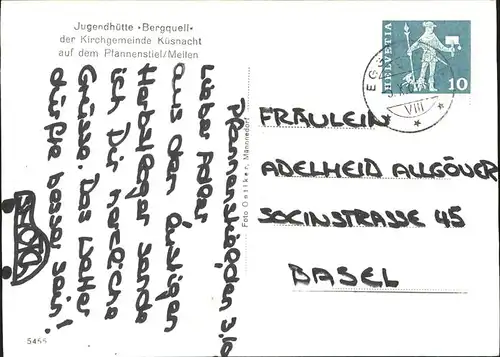 Jugendhütte «Bergquell»
der Kirchgemeinde Küsnacht
auf dem Pfannenstiel/Meilen
HELVETIA
10
EGG
VIII
Pfannenstiel, den 3.10
Lieber
aus dem
Herbstlager sende
ich Dir herzliche
Grüsse. Das Wetter
dürfte besser sein!
Foto Oetiker, Männedorf
FRÄULEIN
ADELHEID ALLGÖWER
SOCINSTRASSE 45
BASEL